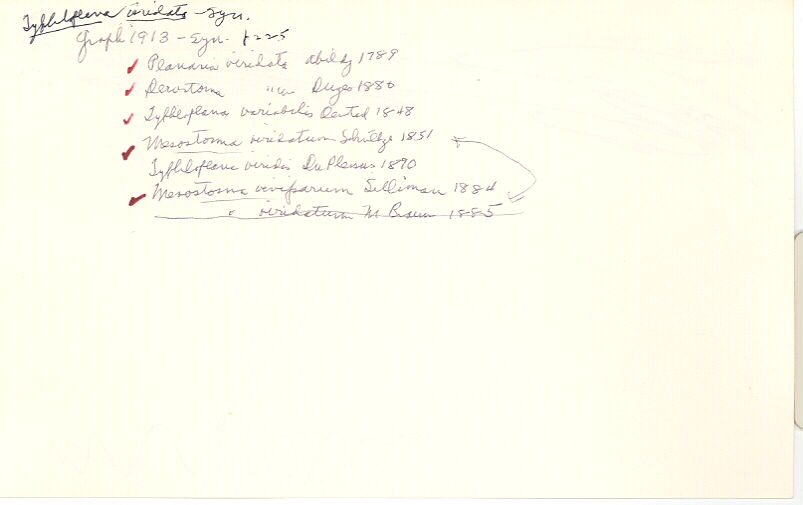 Typhloplana viridata - Syn.
Graff 1913 - Syn. p 225
Planaria viridata Abildg 1789
Derostoma " Duges 1830
Typhloplana variabilis Oersted 1848
Mesostoma viridatum Schultze 1851
Typhloplana viridis DuPlessis 1890
Mesostoma viviparum Silliman 1884
" viridatum M Braun 1885